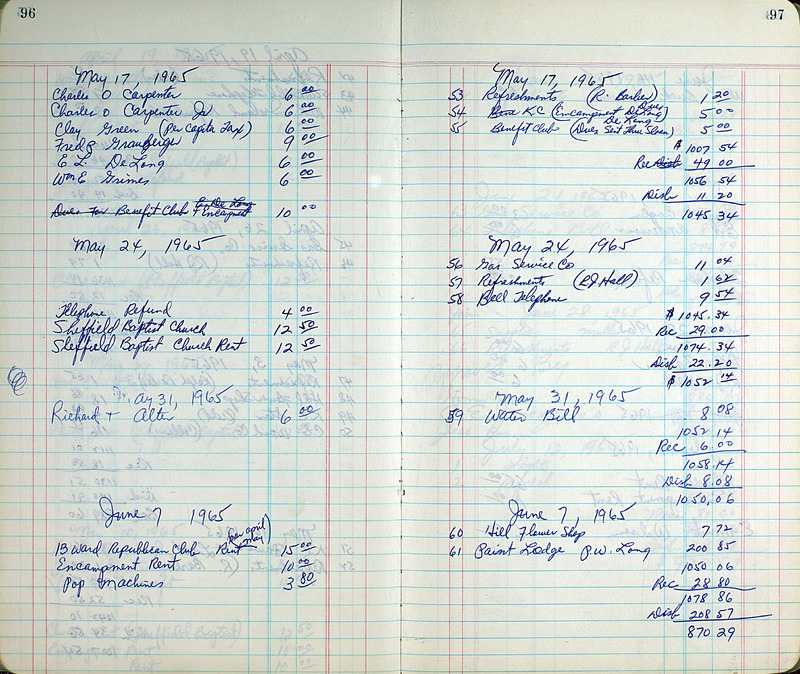 96
May 17, 1965
Charles O Carpenter 6 00
Charles O Carpenter Jr 6 00
Clay Green (Per Capita Tax) 6 00
Fred G Grauberger 9 00
E L. DeLong 6 00
Wm E Grimes 6 00
E, De Long
Dues For Benefit Club + Encampment 10 00
May 24, 1965
Telephone Refund 4 00
Sheffield Baptist Church 12 50
Sheffield Baptist Church Rent 12 50
May 31, 1965
Richard + Alter 6 00
June 7 1965
for april
May
13 Ward Republican Club Rent 15 00
Encampment Rent 10 00
Pop Machines 3 80
97
May 17, 1965
53 Refreshments (R. Barker) 1 20
Dues
54 K.C (Encampment De Long) 5 00
De Long
55 Benefit Club (Dues Sent Thru Sloan) 5 00
$ 1007 54
Rec Disb 49 00
1056 54
Disb 11 20
1045 34
May 24, 1965
56 Gas Service Co 11 04
57 Refreshments (RJ Hall) 1 62
58 Bell Telephone 9 54
$ 1045.34
Rec 29.00
1074.34
Disb 22.20
$ 1052 14
May 31, 1965
59 Water Bill 8 08
1052 14
Rec 6 00
1058.14
Disb 8.08
1050.06
June 7, 1965
60 Hill Flower Shop 7 72
61 Paint Lodge P.W. Long 200 85
1050 06
Rec 28 80
1078 86
Disb 208 57
870 29